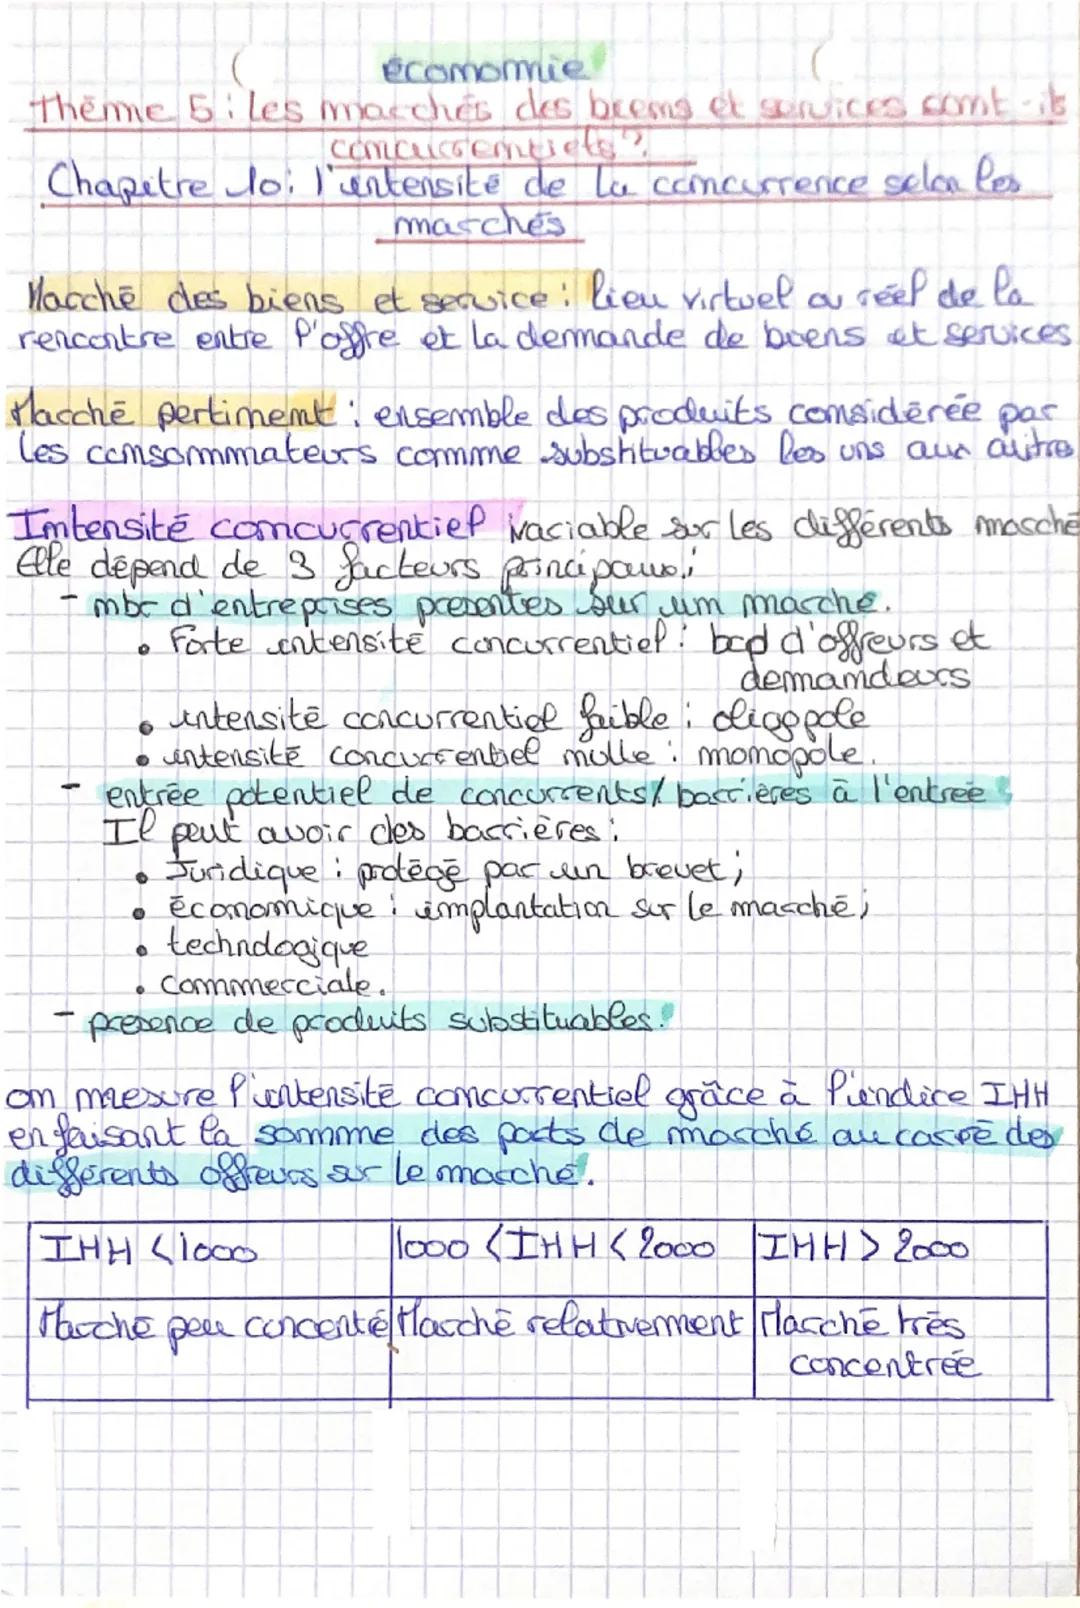 économie
Thème 5 : les marchés des biens et services sont-ils
concurrentiels ?
Chapitre 10 : l'intensité de la concurrence selon les
marchés
Marché des biens et service : lieu virtuel ou réel de la
rencontre entre l'offre et la demande de biens et services
Marché pertinent : ensemble des produits considérée par
les consommateurs comme substituables les uns aux autres
Intensité concurrentiel variable sur les différents marché
Elle dépend de 3 facteurs principaux :
- nbr d'entreprises presentes sur un marché.
• Forte intensité concurrentiel : bcp d'offreurs et
demandeurs
• intensité concurrentiel faible : oligopole
• intensité concurrentiel nulle : monopole.
- entrée potentiel de concurrents / barrières à l'entrée
Il peut avoir des barrières :
• Juridique : protégé par un brevet ;
• économique : implantation sur le marché ;
• technologique
• commerciale.
- presence de produits substituables.
on mesure l'intensité concurrentiel grâce à l'indice IHH
en faisant la somme des parts de marché au carré des
différents offreurs sur le marché.
IHH < 1000 1000 < IHH < 2000 IHH > 2000
Marché peu concentré Marché relativement Marché très
concentrée